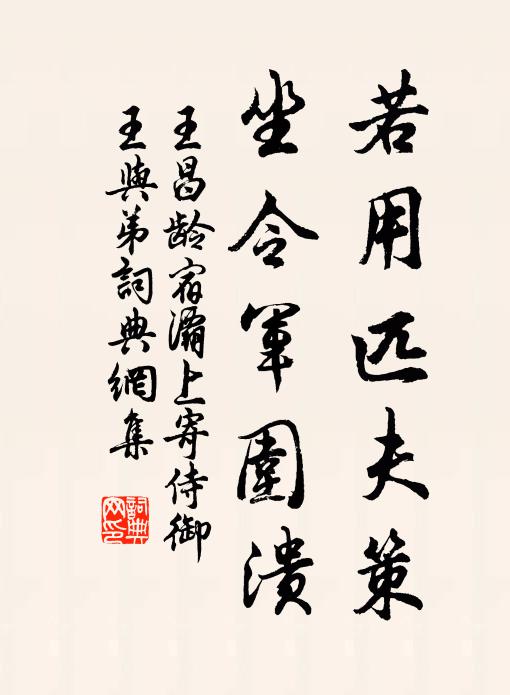 若用匹夫策
坐令軍圍潰
王昌龄宿灞上寄侍御
王與弟詞典網集
詞典
网印